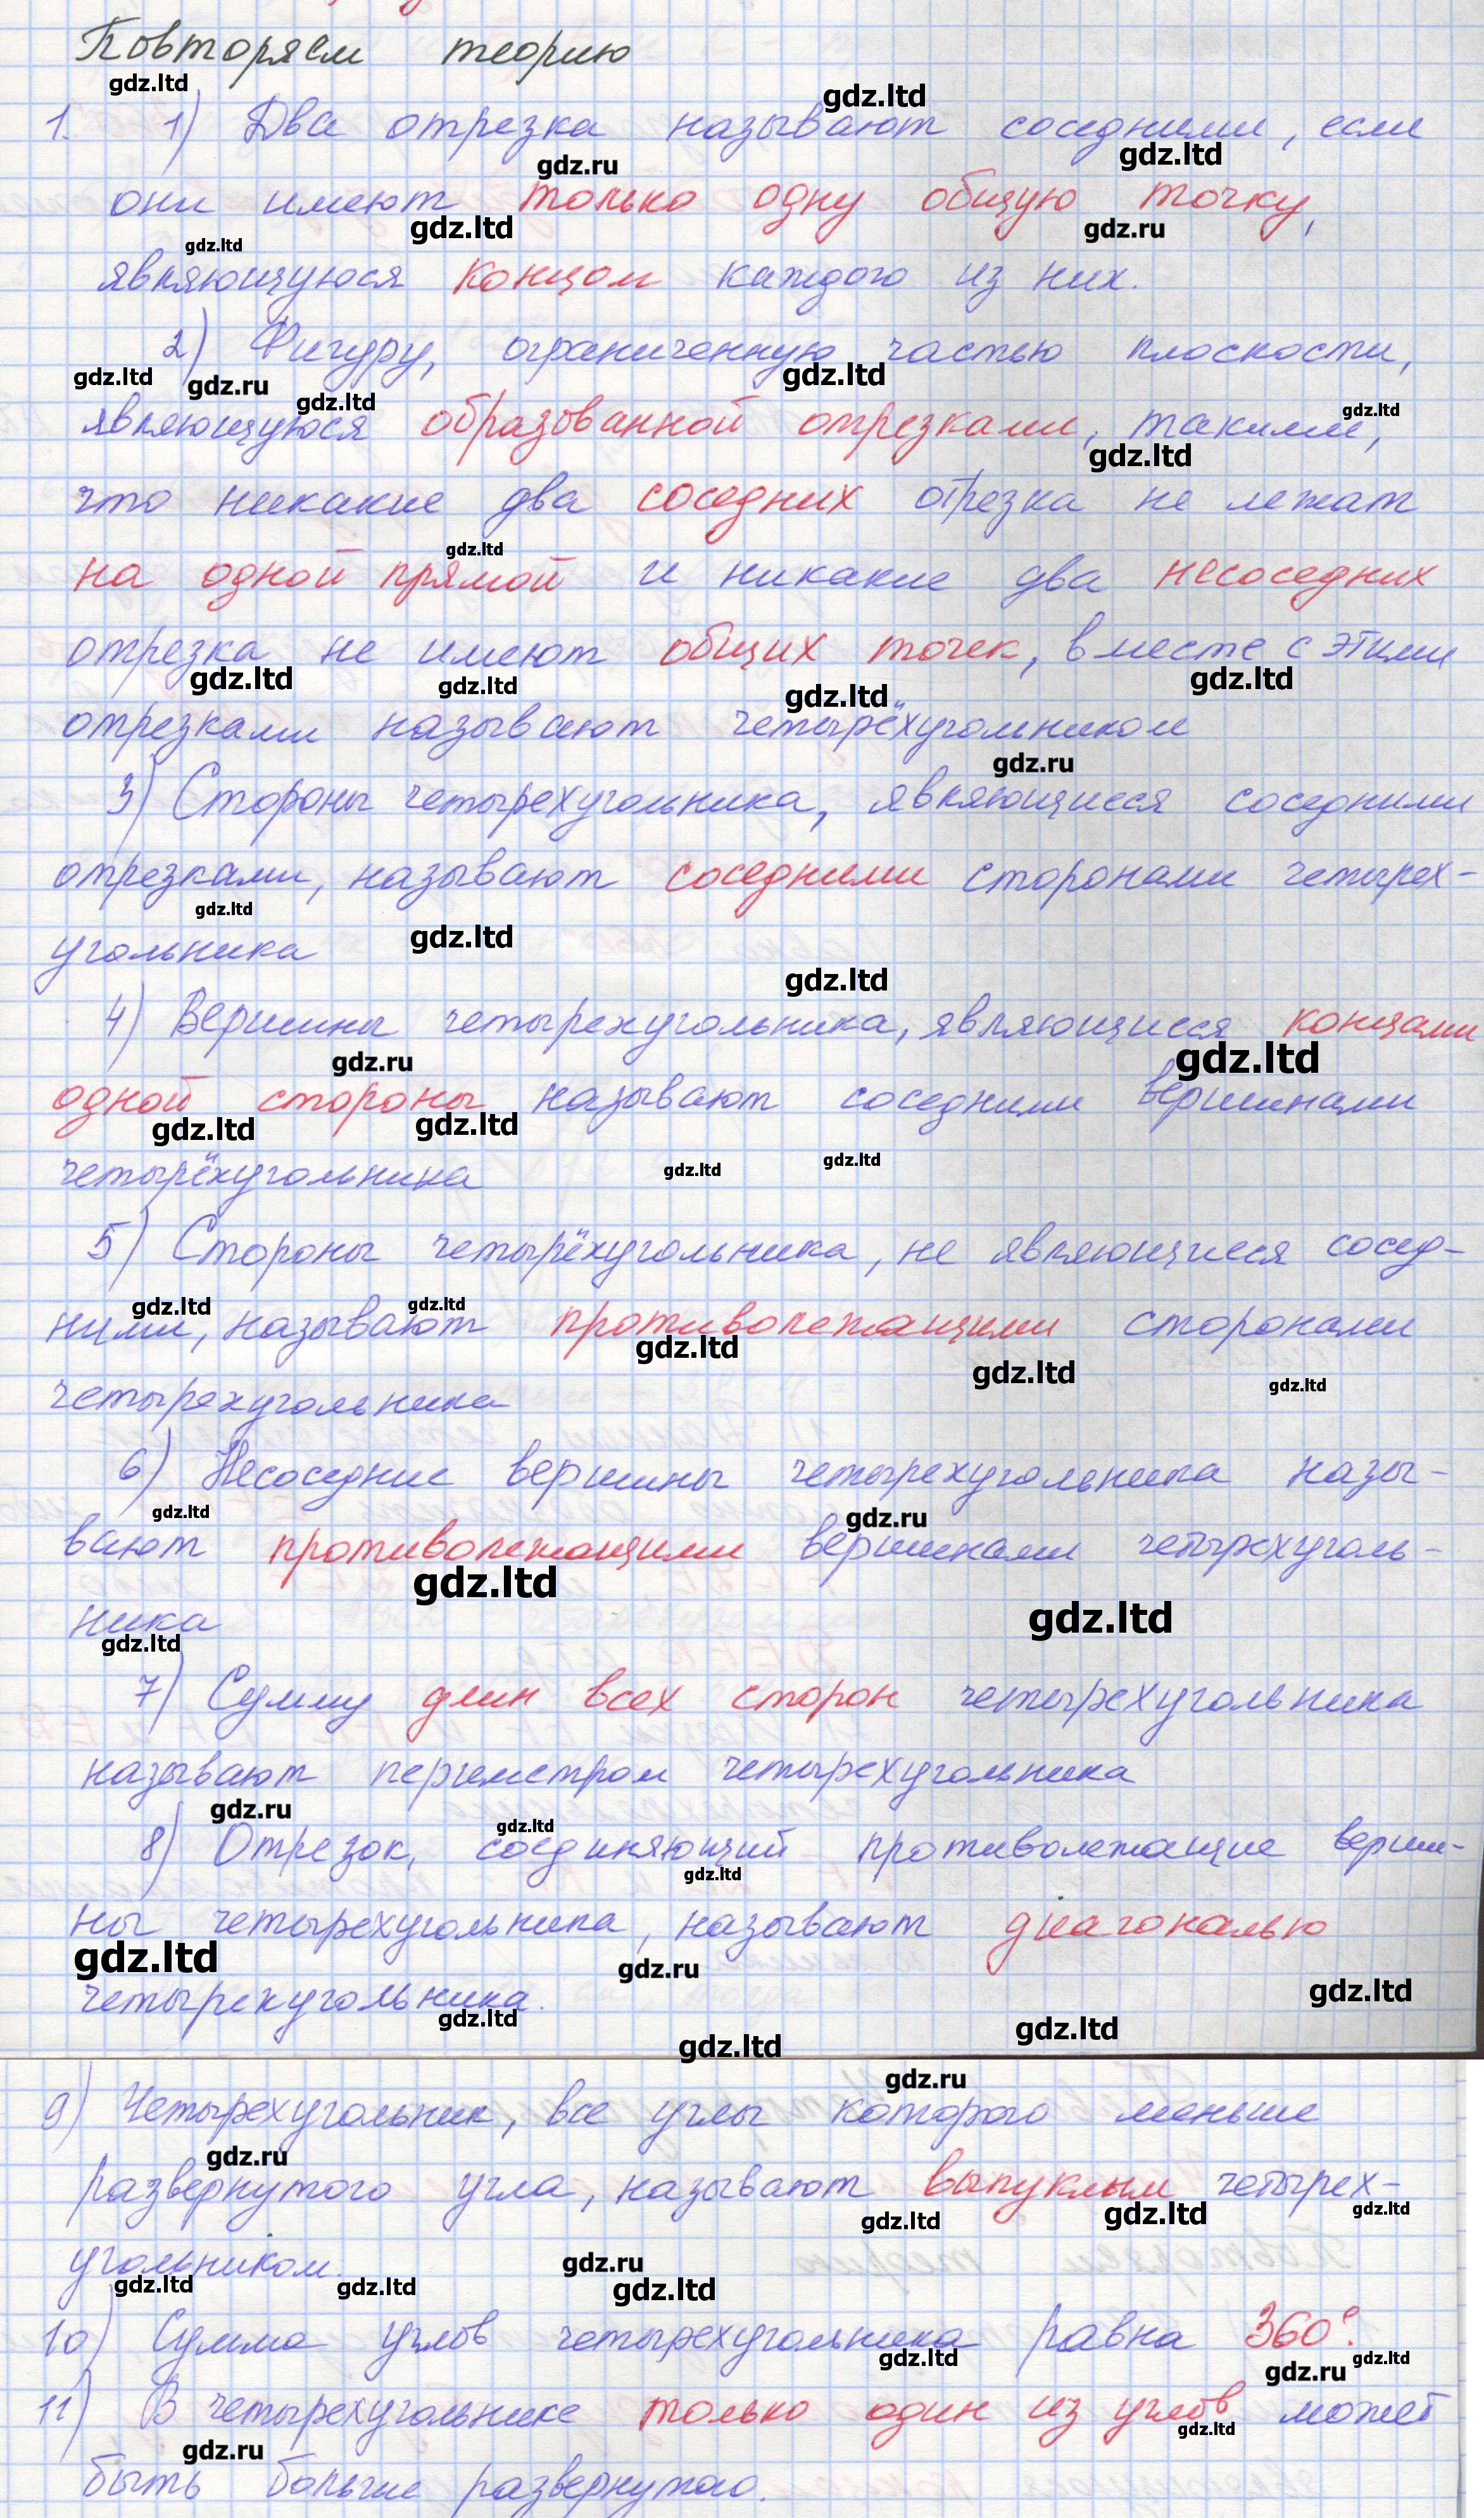 Повторяем теорию
gdz.ltd
gdz.ltd
1. 1) Два отрезка называют соседними, если
gdz.ru gdz.ltd
они имеют только одну общую точку,
gdz.ltd gdz.ltd gdz.ru
являющуюся концом каждого из них.
2) Фигуру, ограниченную частью плоскости,
gdz.ltd gdz.ru gdz.ltd gdz.ltd gdz.ltd
являющуюся образованной отрезками, такими,
gdz.ltd
что никакие два соседних отрезка не лежат
gdz.ltd
на одной прямой и никакие два несоседних
отрезка не имеют общих точек, вместе с этими
gdz.ltd gdz.ltd gdz.ltd gdz.ltd
отрезками называют четырёхугольником
gdz.ru
3) Стороны четырехугольника, являющиеся соседними
отрезками, называют соседними сторонами четырех-
gdz.ltd
угольника
gdz.ltd gdz.ltd
4) Вершины четырехугольника, являющиеся концами
gdz.ru gdz.ltd
одной стороны называют соседними вершинами
gdz.ltd gdz.ltd
четырёхугольника
gdz.ltd gdz.ltd
5) Стороны четырёхугольника, не являющиеся сосед-
gdz.ltd gdz.ltd
ними, называют противолежащими сторонами
gdz.ltd gdz.ltd gdz.ltd
четырехугольника
6) Несоседние вершины четырехугольника назы-
gdz.ltd gdz.ru
вают противолежащими вершинами четырехуголь-
gdz.ltd gdz.ltd
ника
gdz.ltd
7) Сумму длин всех сторон четырехугольника
называют периметром четырехугольника
gdz.ru gdz.ltd
8) Отрезок, соединяющий противолежащие верши-
gdz.ltd
ны четырехугольника, называют диагональю
gdz.ltd gdz.ru gdz.ltd
четырехугольника.
gdz.ltd gdz.ltd gdz.ltd
gdz.ru
9) Четырехугольник, все углы которого меньше
gdz.ru
развернутого угла, называют выпуклым четырех-
gdz.ltd gdz.ltd gdz.ltd
угольником.
gdz.ltd gdz.ltd gdz.ru gdz.ltd
10) Сумма углов четырехугольника равна 360°.
gdz.ltd gdz.ru gdz.ltd
11) В четырехугольнике только один из углов может
gdz.ru gdz.ltd
быть больше развернутого.